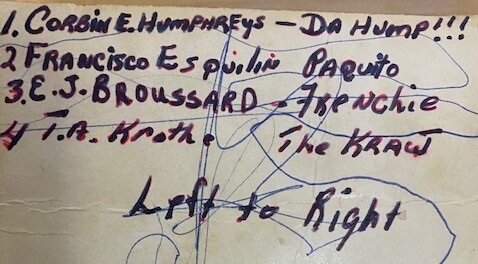 1. CORBIN E. HUMPHREYS – DA HUMP!!!
2 FRANCISCO ESQUILIN PAQUITO
3. E. J. BROUSSARD - FRENCHIE
4 T. A. Knothe The KRAUT
Left to Right